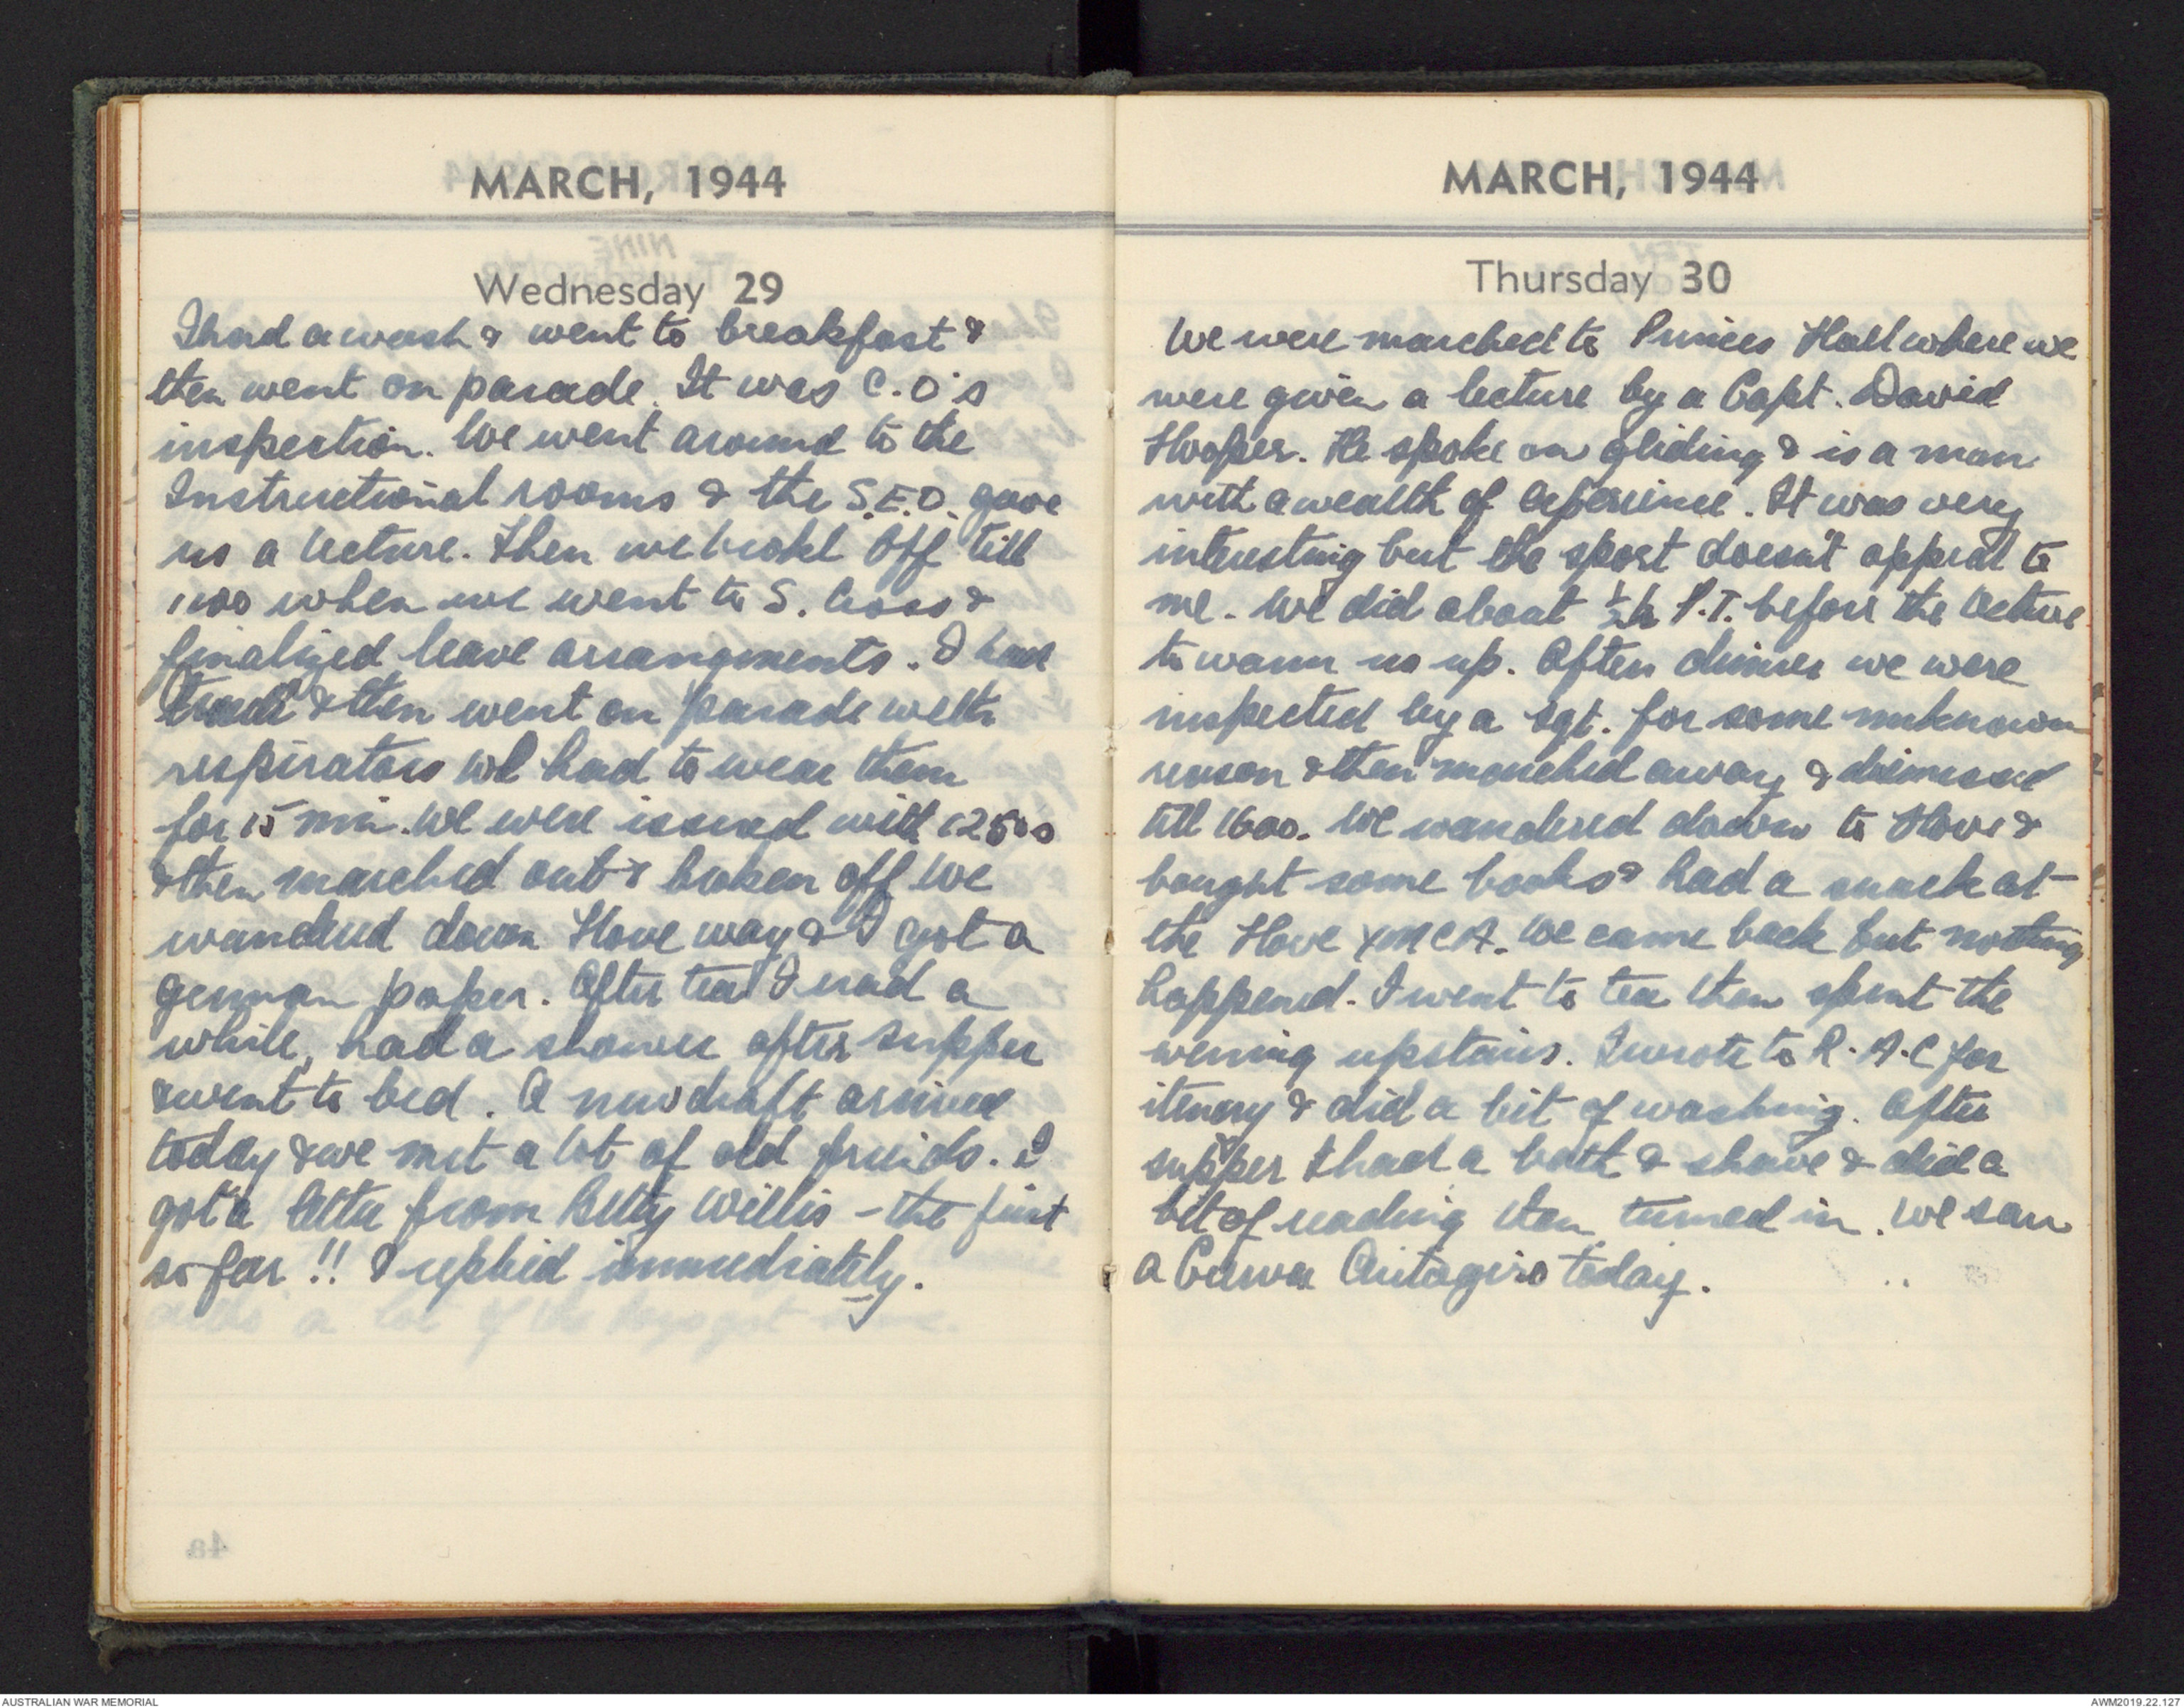 MARCH, 1944
Wednesday 29
I had a wash & went to breakfast &
then went on parade. It was C.O's
inspection. We went around to the
Instructional rooms & the S.E.O. gave
us a lecture. Then we broke off till
1100 when we went to S. Cross &
finalized leave arrangments. I had
& then went on parade with
respirators we had to wear them
for 15 min. We were issued with 1250s
& then marched out & broken off We
wandered down Hove way & I got a
german paper. After tea I read a
while, had a shower after supper
& went to bed. A new draft arrived
today & we met a lot of old friends. I
got a letter from Betty Willis – the first
so far !! I replied immediately.
MARCH, 1944
Thursday 30
We were marched to Princes Hall where we
were given a lecture by a Capt. David
Hooper. He spoke on gliding & is a man
with a wealth of experience. It was very
interesting but the sport doesn't appeal to
me. We did about ½ h P.T. before the lecture
to warm us up. After dinner we were
inspected by a Sgt. for some unknown
reason & then marched away & dismissed
till 1600. We wandered down to Hove &
bought some books & had a snack at
the Hove YMCA. We came back but nothing
happened. I went to tea then spent the
evening upstairs. I wrote to R.A.C for
itenery & did a bit of washing. After
supper I had a bath & shave & did a
bit of reading then turned in. We saw
a Cierva Autogiro today.
AUSTRALIAN WAR MEMORIAL
AWM2019.22.127